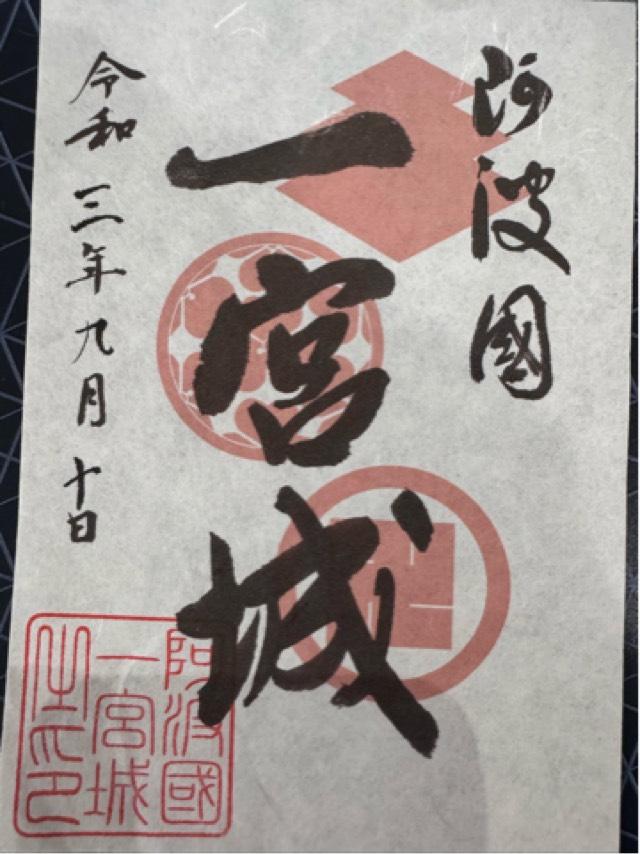 阿波國
一宮城
令和三年九月十日
阿波國
一宮城
之印